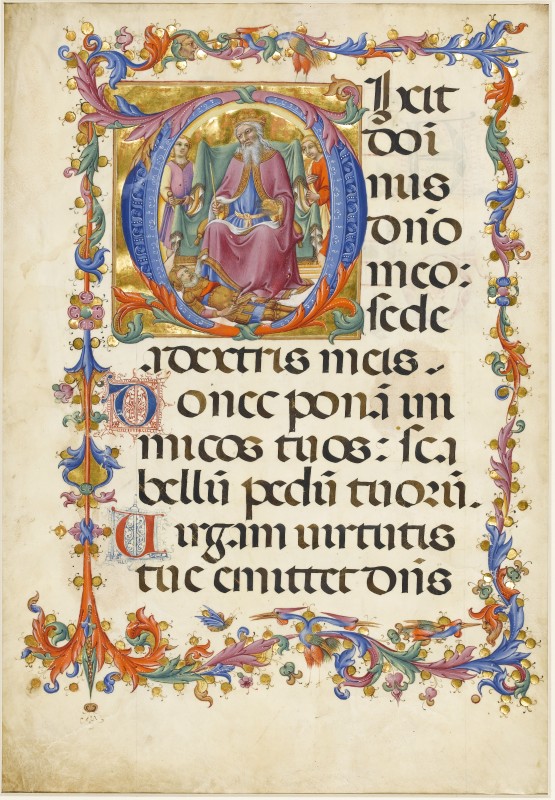 DIxit
doi
nus
dño
meo:
sede
adextris meis.
Donec ponā ini
micos tuos: sca
bellū pedū tuorū.
Uirgam uirtutis
tue emittet dñs